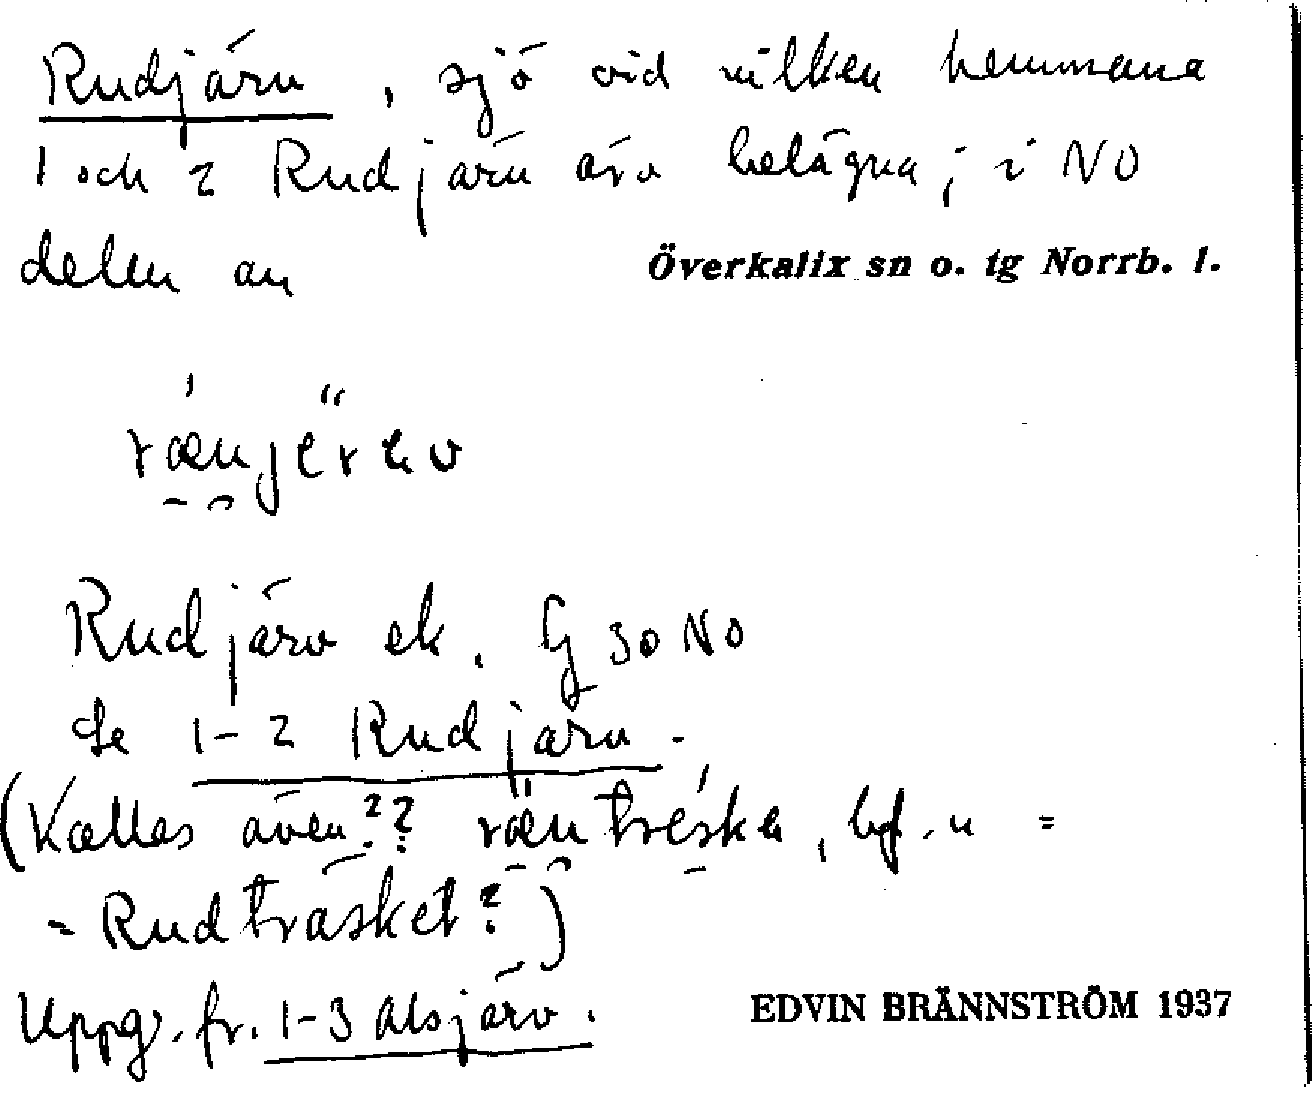 Rudjärv, sjö vid vilken hemmana
1 och 2 Rudjärv äro belägna; i NO
delen av
Överkalix sn o. tg Norrb. l.
Rudjärv ek. G 30 NO
Se 1-2 Rudjärv.
(Kallas även?? träska, bf. u =
= Rudträsket?)
Uppg. fr. 1-3 Alsjärv.
EDVIN BRÄNNSTRÖM 1937